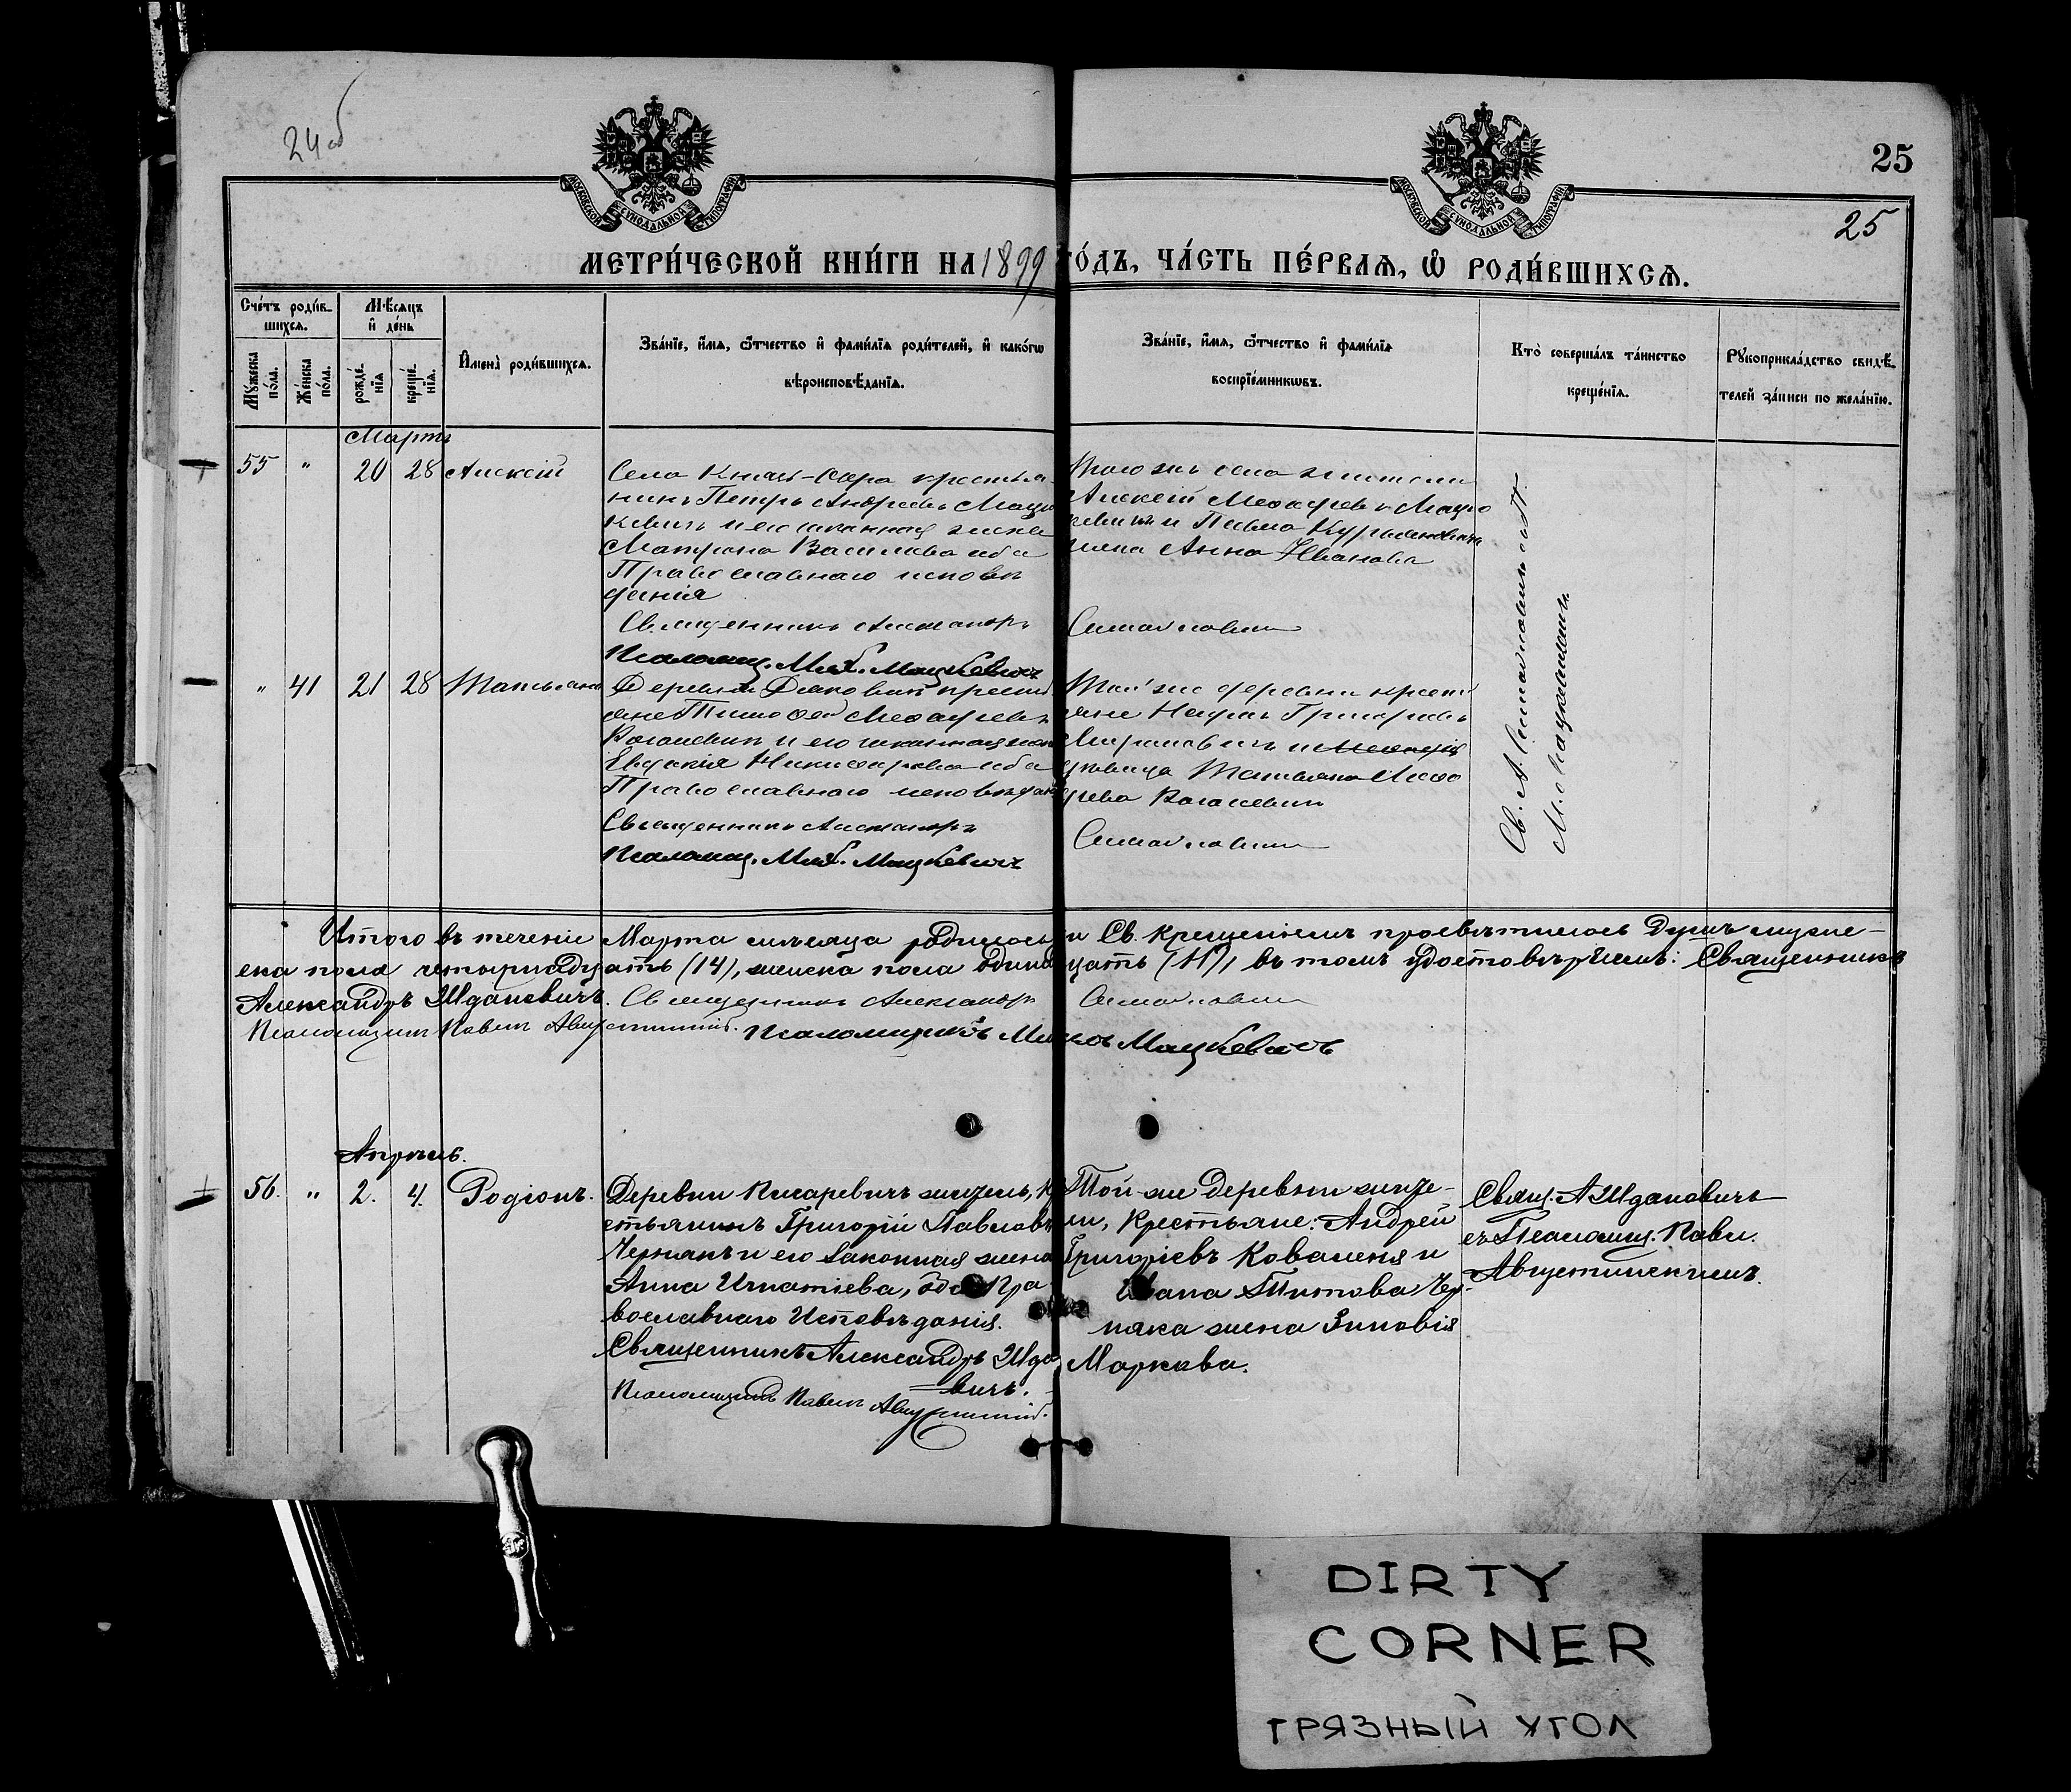 24об
25
25
МОСКОВСКОЙ СѴНОДАЛЬНОЙ ТИПОГРАФІИ
МОСКОВСКОЙ СѴНОДАЛЬНОЙ ТИПОГРАФІИ
МЕТРИ́ЧЕСКОЙ КНИ́ГИ НА 1899 ГО́ДЪ, ЧА́СТЬ ПЕ́РВАѦ, Ѽ РОДИ́ВШИХСѦ.
Сче́тъ роди́в-
шихсѧ.
Мꙋжеска по́ла.
Же́нска по́ла.
Мѣсѧцъ и҆ де́нь
рожде́нїѧ
креще́нїѧ.
И҆мена̀ роди́вшихсѧ.
Зва́нїе, и҆́мѧ, ѻ҆́тчество и҆ фами́лїѧ роди́телей, и҆ како́гѡ
вѣроисповѣданїѧ.
Зва́нїе, и҆́мѧ, ѻ҆́тчество и҆ фами́лїѧ
воспрїе́мникѡвъ.
Кто̀ соверша́лъ та́инство
креще́нїѧ.
Рꙋкоприкла́дство свидѣ-
телей за́писи по жела́нїю.
Мартъ
55 " 20 28 Алексій
Села Князь-Озера крестья
нинъ Петръ Андреевъ Мацу
кевичъ и его законная жена
Матрона Василева оба
Православнаго исповѣ
данія
Священникъ Александръ
Псаломщ. Мих. Мацкевичъ
Того же села жители
Алексій Мацу
кевичъ и Павла
жена Анна Иванова
" 41 21 28 Татьяна
Деревни крестья
яне Тимофей
и его законная жена
Евдокія Никифорова оба
Православнаго исповѣдан
Священникъ Александръ
Псаломщ. Мих. Мацкевичъ
Той же деревни кресть
яне Григорьевъ
Мироновичъ и
дѣвица Татьяна
Св. А.
М. Мацкевичемъ
Итого въ теченіе Марта мѣсяца родилось и Св. Крещеніемъ просвѣтилось Душъ муже-
ска пола четырнадцать (14), женска пола одинадцать (11), въ томъ удостовѣряемъ: Священникъ
Александръ Ждановичъ. Священникъ Александръ
Псаломщикъ Павелъ Августинскій. Псаломщикъ Михаилъ Мацкевичъ
Апрѣль.
56. " 2. 4. Родіонъ.
Деревни Писаревичъ житель, Кр
естьянинъ Григорій Павловъ
Чернякъ и его законная жена
Анна Игнатіева, оба Пра
вославнаго Исповѣданія.
Священникъ Александръ Жда
вичъ.
Псаломщикъ Павелъ Августинскій.
Той-же Деревни жите-
ли, Крестьяне: Андрей
Григоріевъ Коваленя и
Ивана Титова Чер-
няка жена Зиновія
Маркова.
Свящ. А Ждановичъ
съ Псаломщ. Павл.
Августинскимъ.
DIRTY
CORNER
ГРЯЗНЫЙ УГОЛ